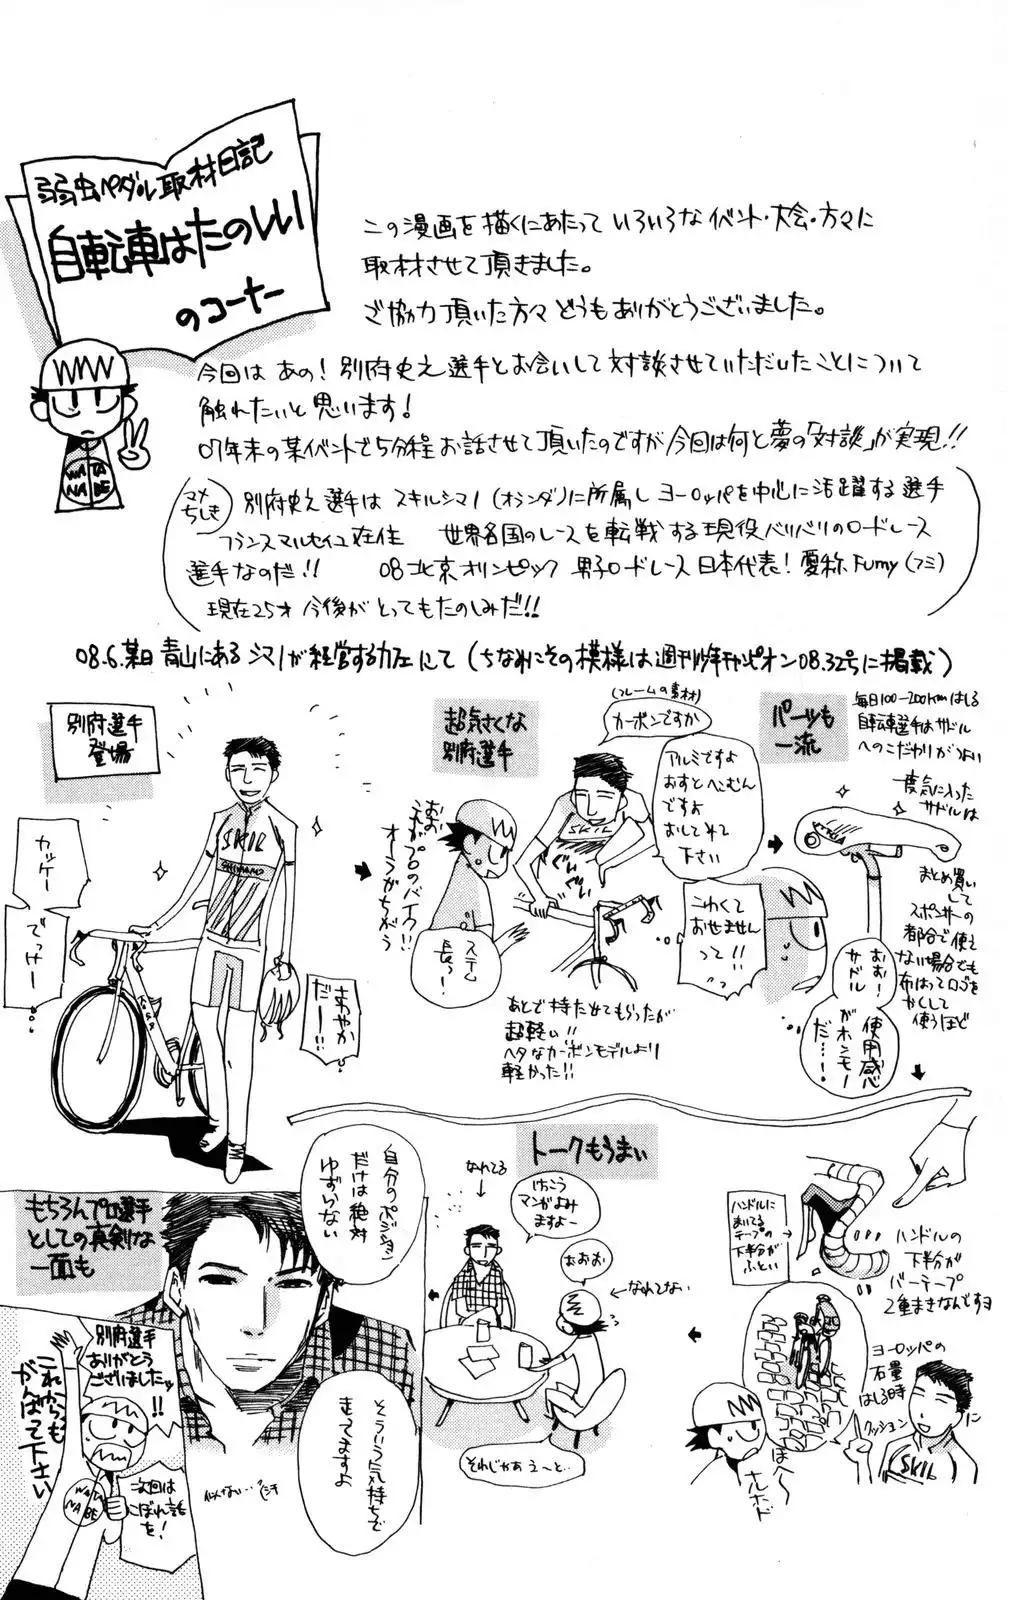 弱虫ペダル取材日記
自転車はたのしい
のコーナー
この漫画を描くにあたって いろいろなイベント・大会・方々に
取材させて頂きました。
ご協力頂いた方々 どうもありがとうございました。
今回は あの! 別府史之選手とお会いして 対談させていただいたことについて
触れたいと思います!
07年末の某イベントで5分程お話させて頂いたのですが今回は何と夢の「対談」が実現!!
マメちしき
別府史之選手は スキルシマノ(オランダ)に所属し ヨーロッパを中心に活躍する選手
フランスマルセイユ在住 世界各国のレースを転戦する現役バリバリのロードレース
選手なのだ!! 08北京オリンピック 男子ロードレース日本代表! 愛称Fumy(フミ)
現在25才 今後がとってもたのしみだ!!
08.6.某日 青山にあるシマノが経営するカフェにて(ちなみにその模様は週刊少年チャンピオン08.32号に掲載)
別府選手
登場
カッケー
でっけー
SKIL
SHIMANO
さわやか
だー!!
超気さくな
別府選手
(フレームの素材)
カーボンですか
アルミですよ
おすとへこむん
ですよ
おしてみて
下さい
おお
これがプロのバイク!!
オーラがちがう
SKIL
ステム
長っ!
こわくて
おせません
って!!
あとで持たせてもらったが
超軽い!!
ヘタなカーボンモデルより
軽かった!!
パーツも
一流
毎日100-200kmはしる
自転車選手はサドル
へのこだわりがつよい
一度気に入った
サドルは
まとめ買い
して
スポンサーの
都合で使え
ない場合でも
布はってロゴを
かくして
使うほど
おお!
サドル
がホンモー
使用感
だ…!
ハンドルに
まいてる
テープの
下半分が
ふとい
ハンドルの
下半分が
バーテープ
2重まきなんですヨ
ヨーロッパの
石畳
はしる時
クッションに
SKIL
ほへ〜
ナルホド
トークもうまい
なれてる
けっこう
マンガよみ
ますよー
おおお
←なれてない
それじゃあえーと…
もちろんプロ選手
としての真剣な
一面も
自分のポジション
だけは絶対
ゆずらない
そういう気持ちで
走ってますよ
似てない…
別府選手
ありがとう
ございましたッ
!!
これからも
がんばって下さい
次回は
こぼれ話
を!
WATA
NABE